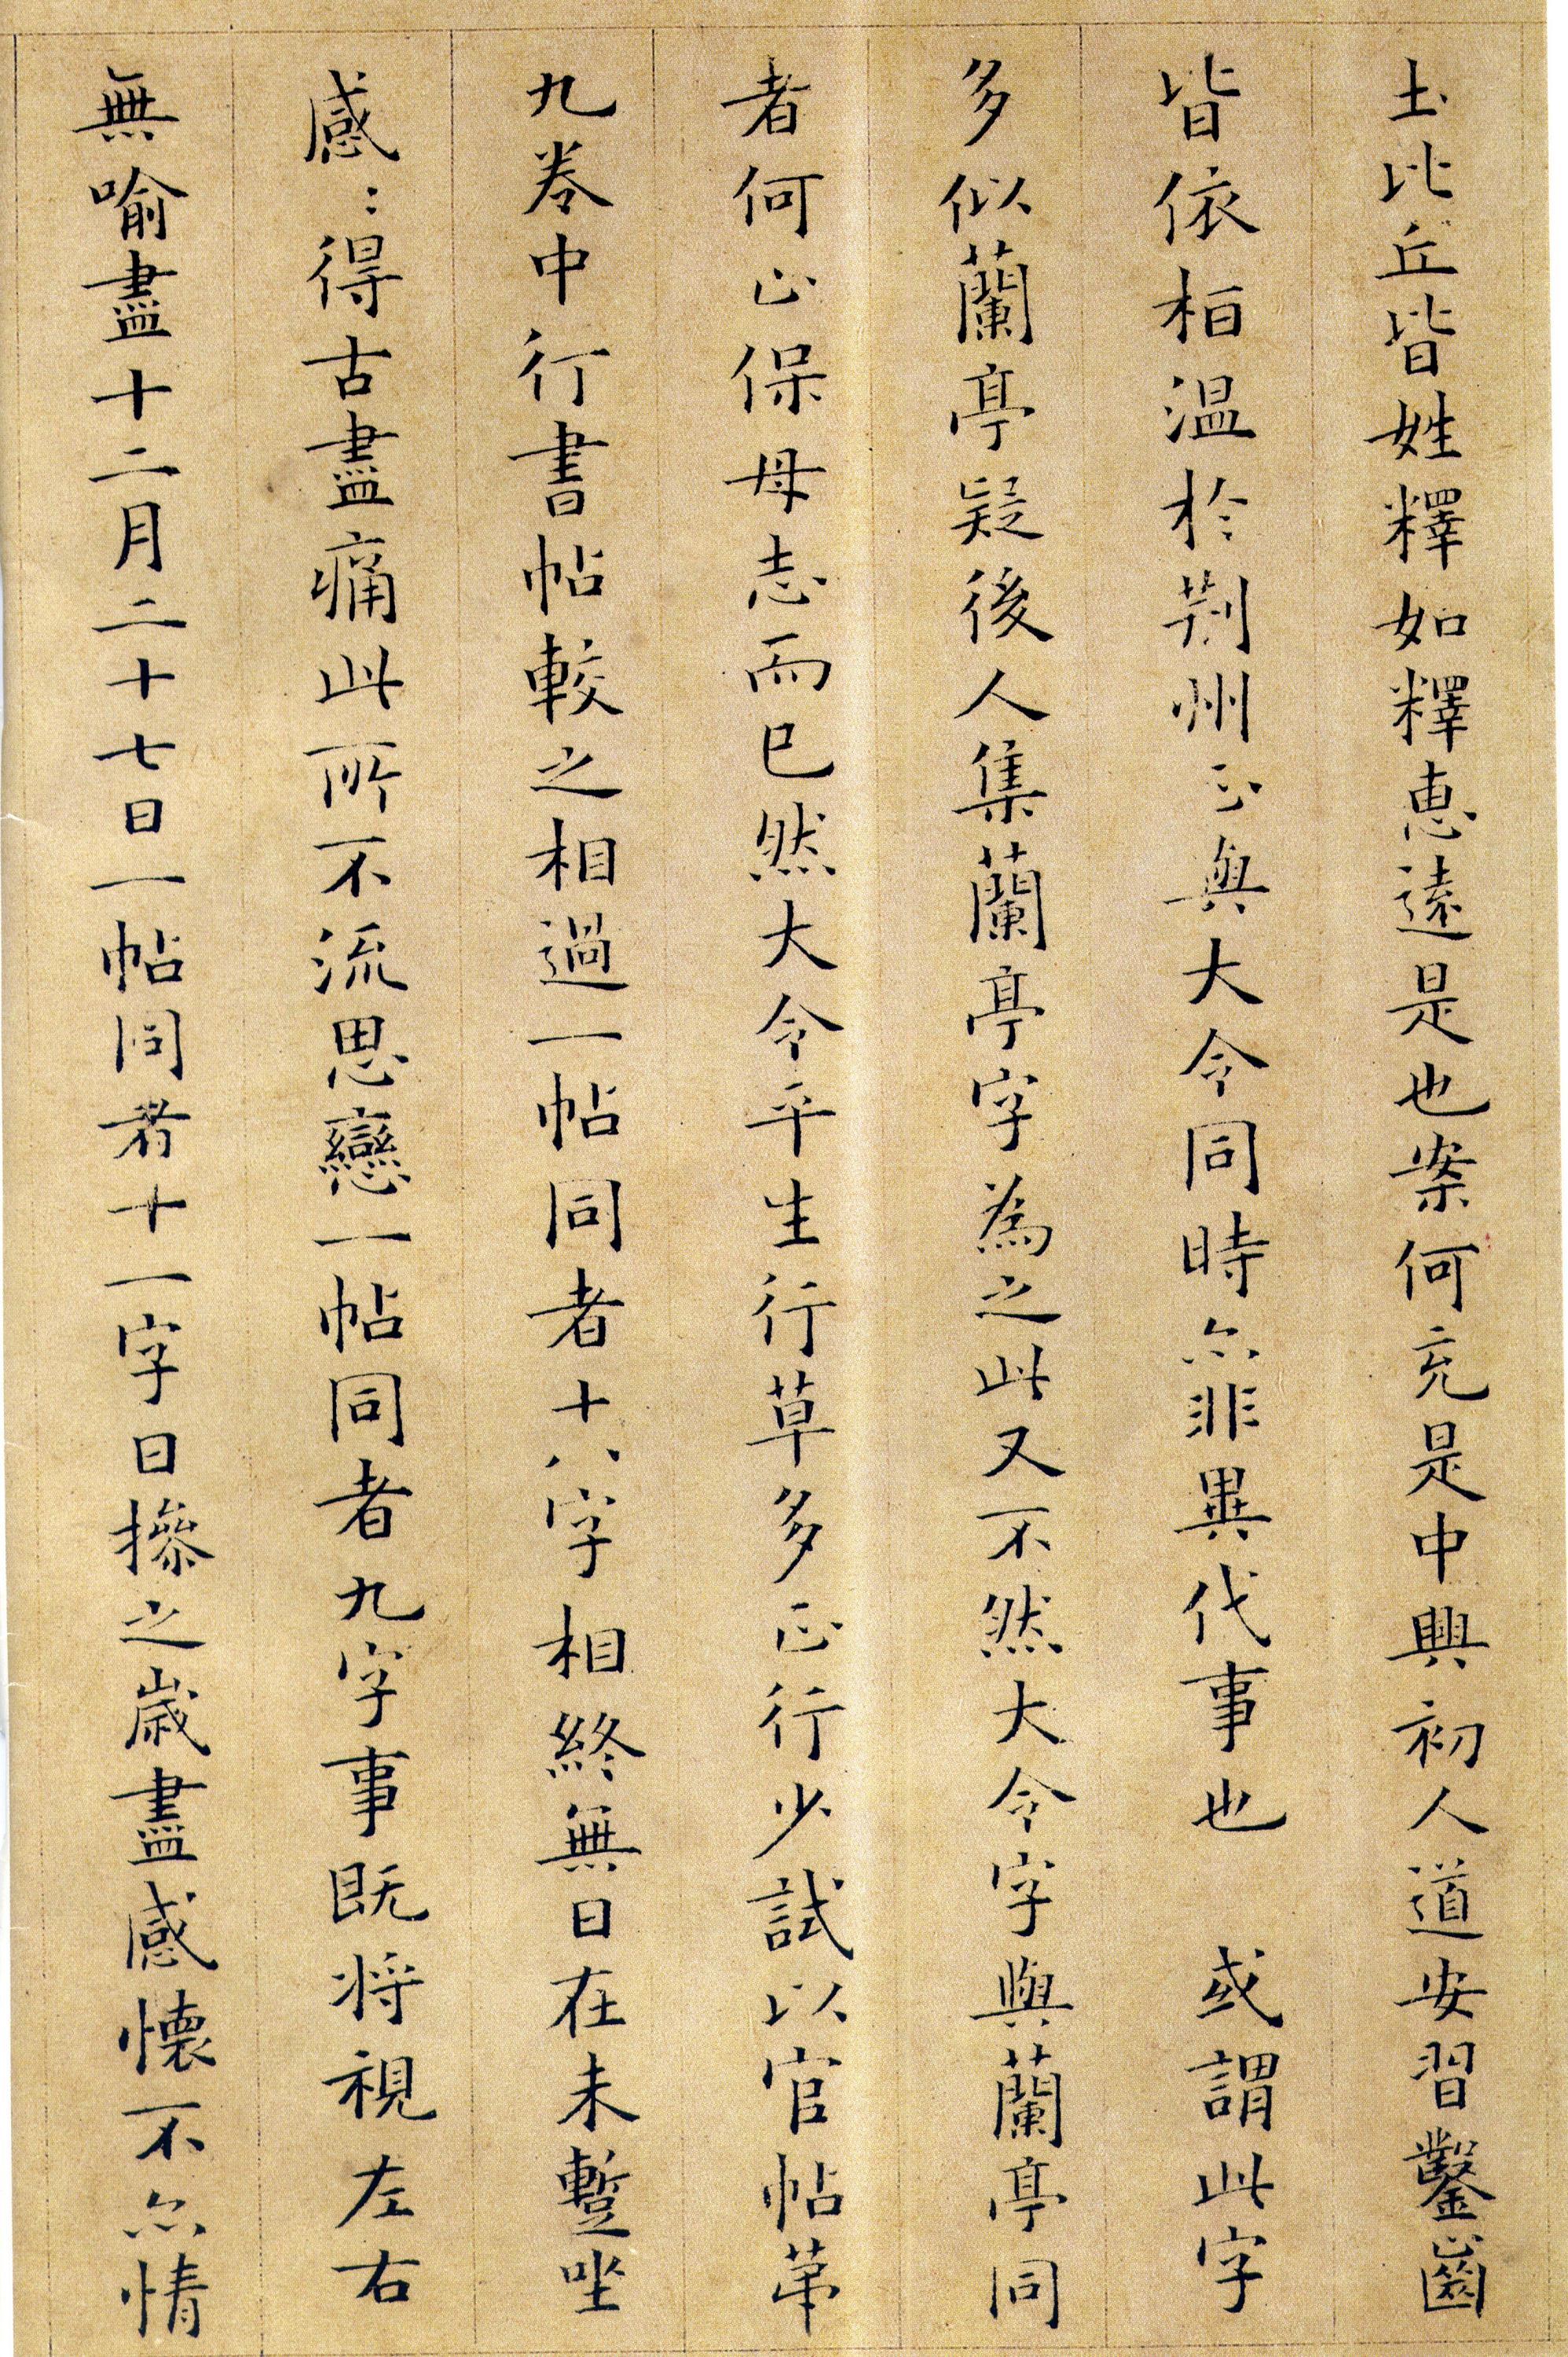 土比丘皆姓釋如釋惠遠是也案何充是中興初人道安習鑿齒
皆依桓溫於荆州正與大令同時亦非異代事也 或謂此字
多似蘭亭疑後人集蘭亭字為之此又不然大令字與蘭亭同
者何止保母志而已然大令平生行草多正行少試以官帖苐
九卷中行書帖較之相過一帖同者十八字相終無日在未蹔坐
感〻得古盡痛此所不流思戀一帖同者九字事既将視左右
無喻盡十二月二十七日一帖同者十一字日摻之歲盡感懐不亦情